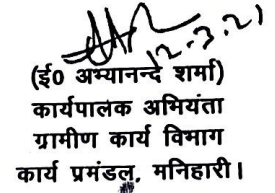 12-3-21
(ई० अभ्यानन्द शर्मा)
कार्यपालक अभियंता
ग्रामीण कार्य विभाग
कार्य प्रमंडल, मनिहारी।